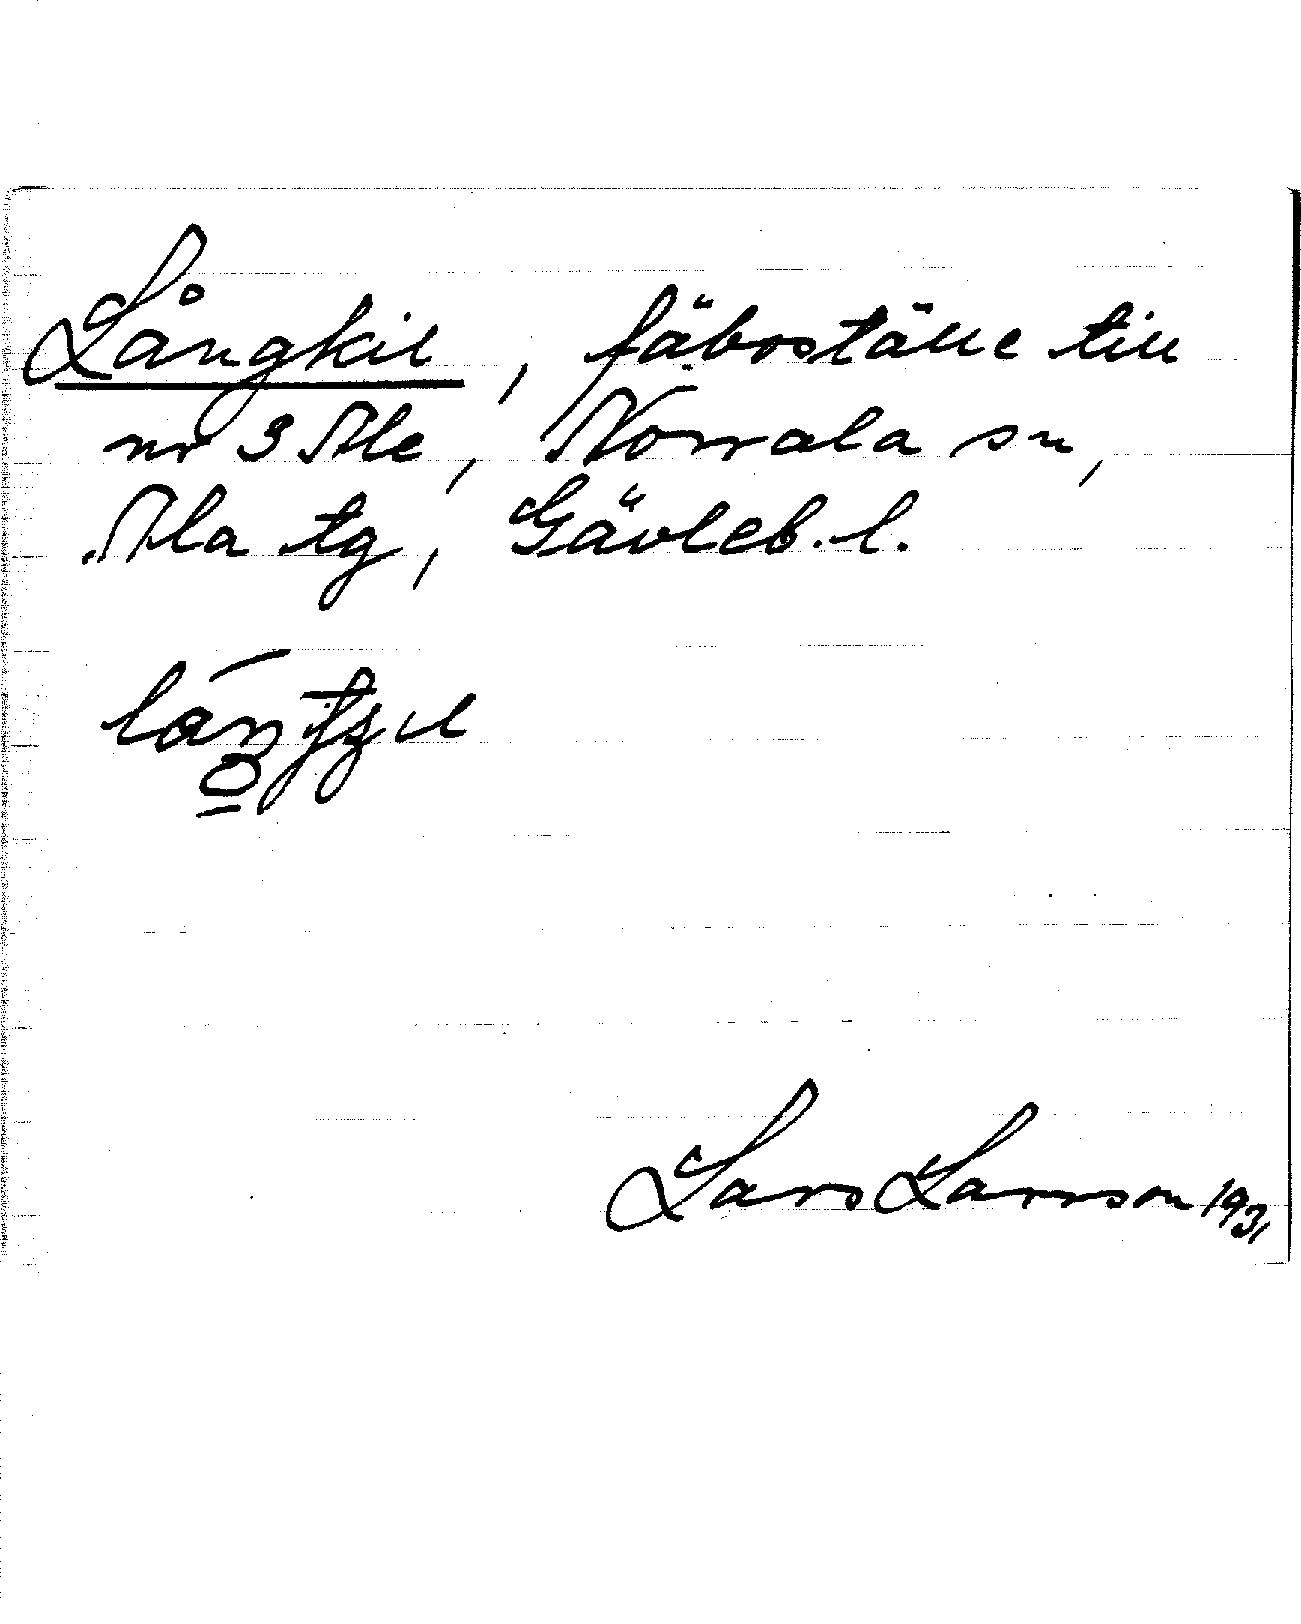 Långkil, fäboställe till
nr 3 Ale, Norrala sn,
Ala tg, Gävleb. l.
Lars Larsson 1931